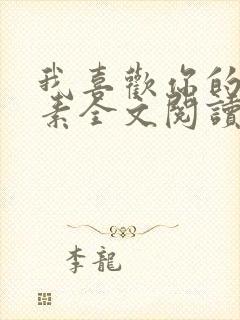 我喜歡你的
素全文閱讀
李龍